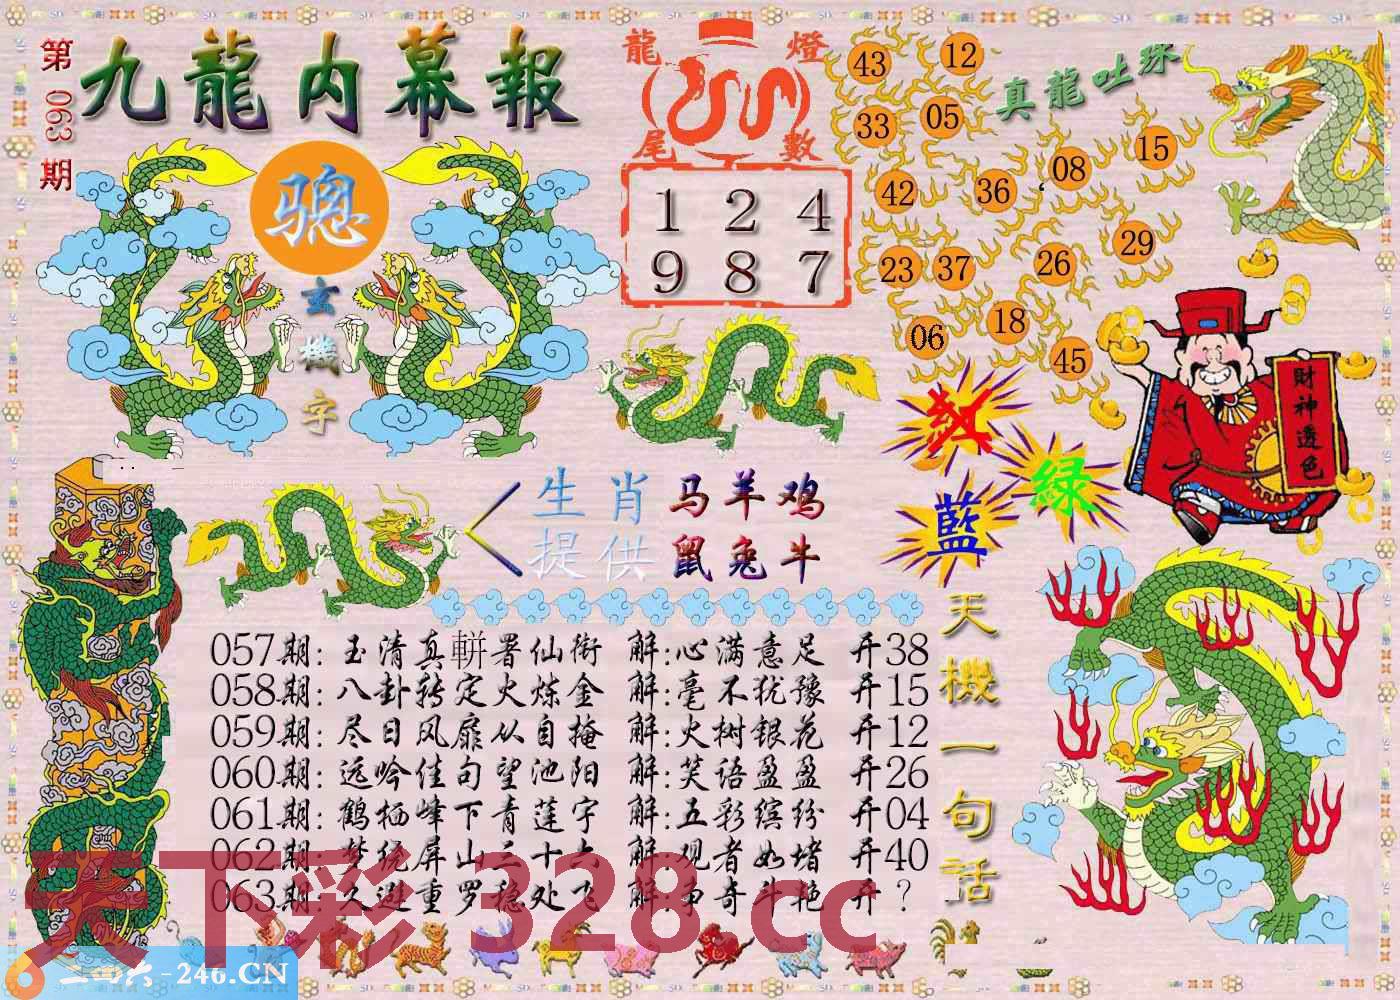 第063期
九龍内幕報
骢
玄機字
龍燈
尾數
1 2 4
9 8 7
真龍吐珠
43 12
33 05
42 36 08 15
23 37 26 29
06 18 45
財神透色
紅
綠
藍
生肖 马羊鸡
提供 鼠兔牛
天機一句話
057期: 玉清真軿署仙衔 解:心满意足 开38
058期: 八卦转定火炼金 解:毫不犹豫 开15
059期: 尽日风扉从自掩 解:火树银花 开12
060期: 远吟佳句望池阳 解:笑语盈盈 开26
061期: 鹤栖峰下青莲宇 解:五彩缤纷 开04
062期: 梦绕屏山二十六 解:观者如堵 开40
063期: 久避重罗稳处飞 解:争奇斗艳 开?
天下彩 328.cc
二四六-246.CN